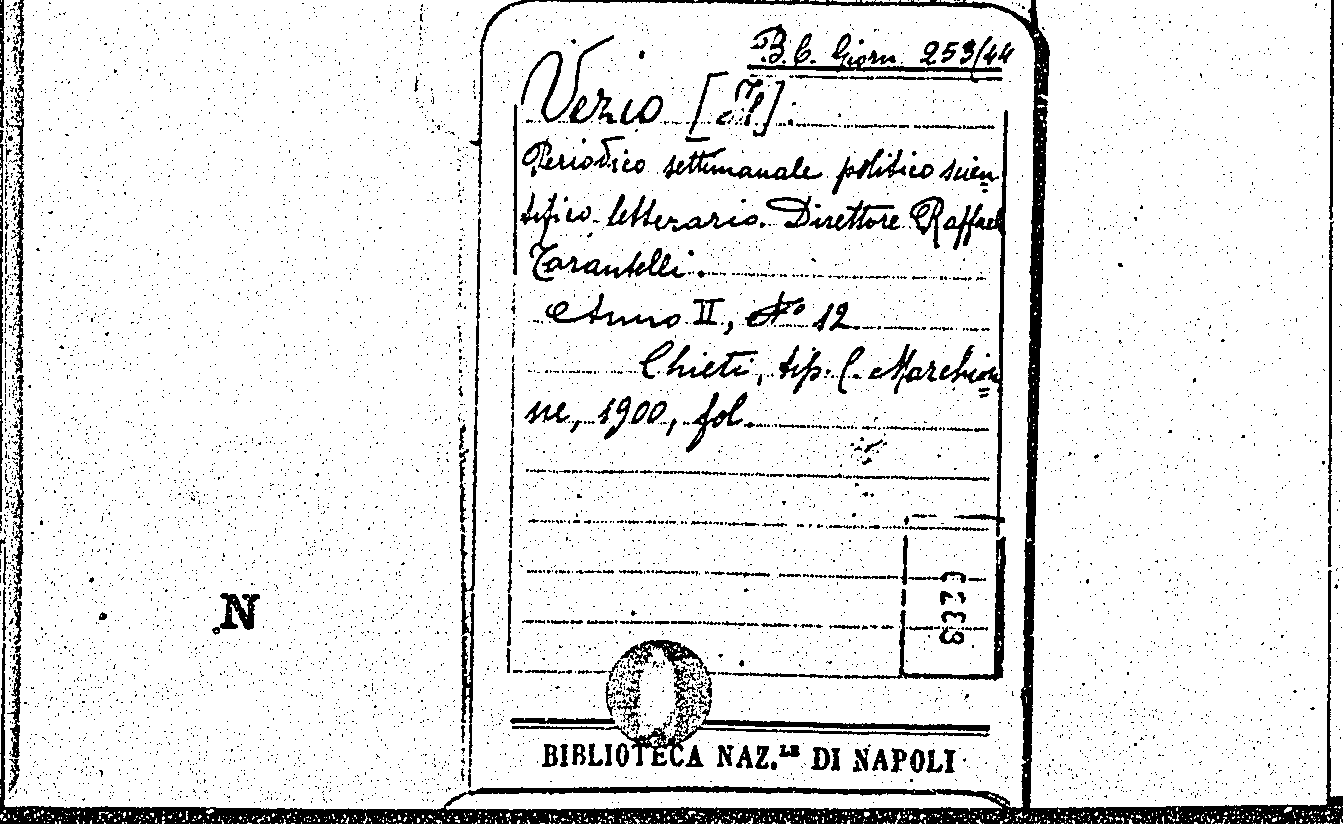 B. C. Giorn. 253/44
Vezio [Il].
Periodico settimanale politico scien=
tifico letterario. Direttore Raffael
Tarantelli.
Anno II, N.º 12
Chieti, tip. C. Marchion
ne, 1900, fol.
N
BIBLIOTECA NAZ.LE DI NAPOLI